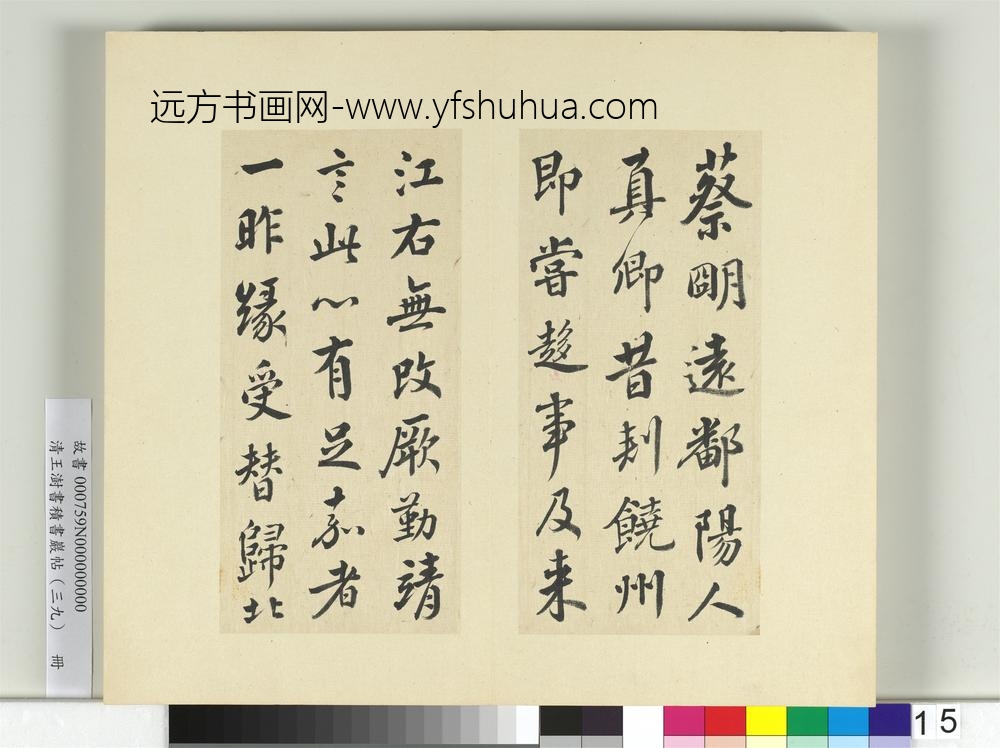 远方书画网-www.yfshuhua.com
蔡明遠鄱陽人
真卿昔刺饒州
即嘗趍事及来
江右無改厥勤靖
言此心有足嘉者
一昨緣受替歸北
故書 000759N000000000
清王澍書積書巖帖（三九） 冊
15